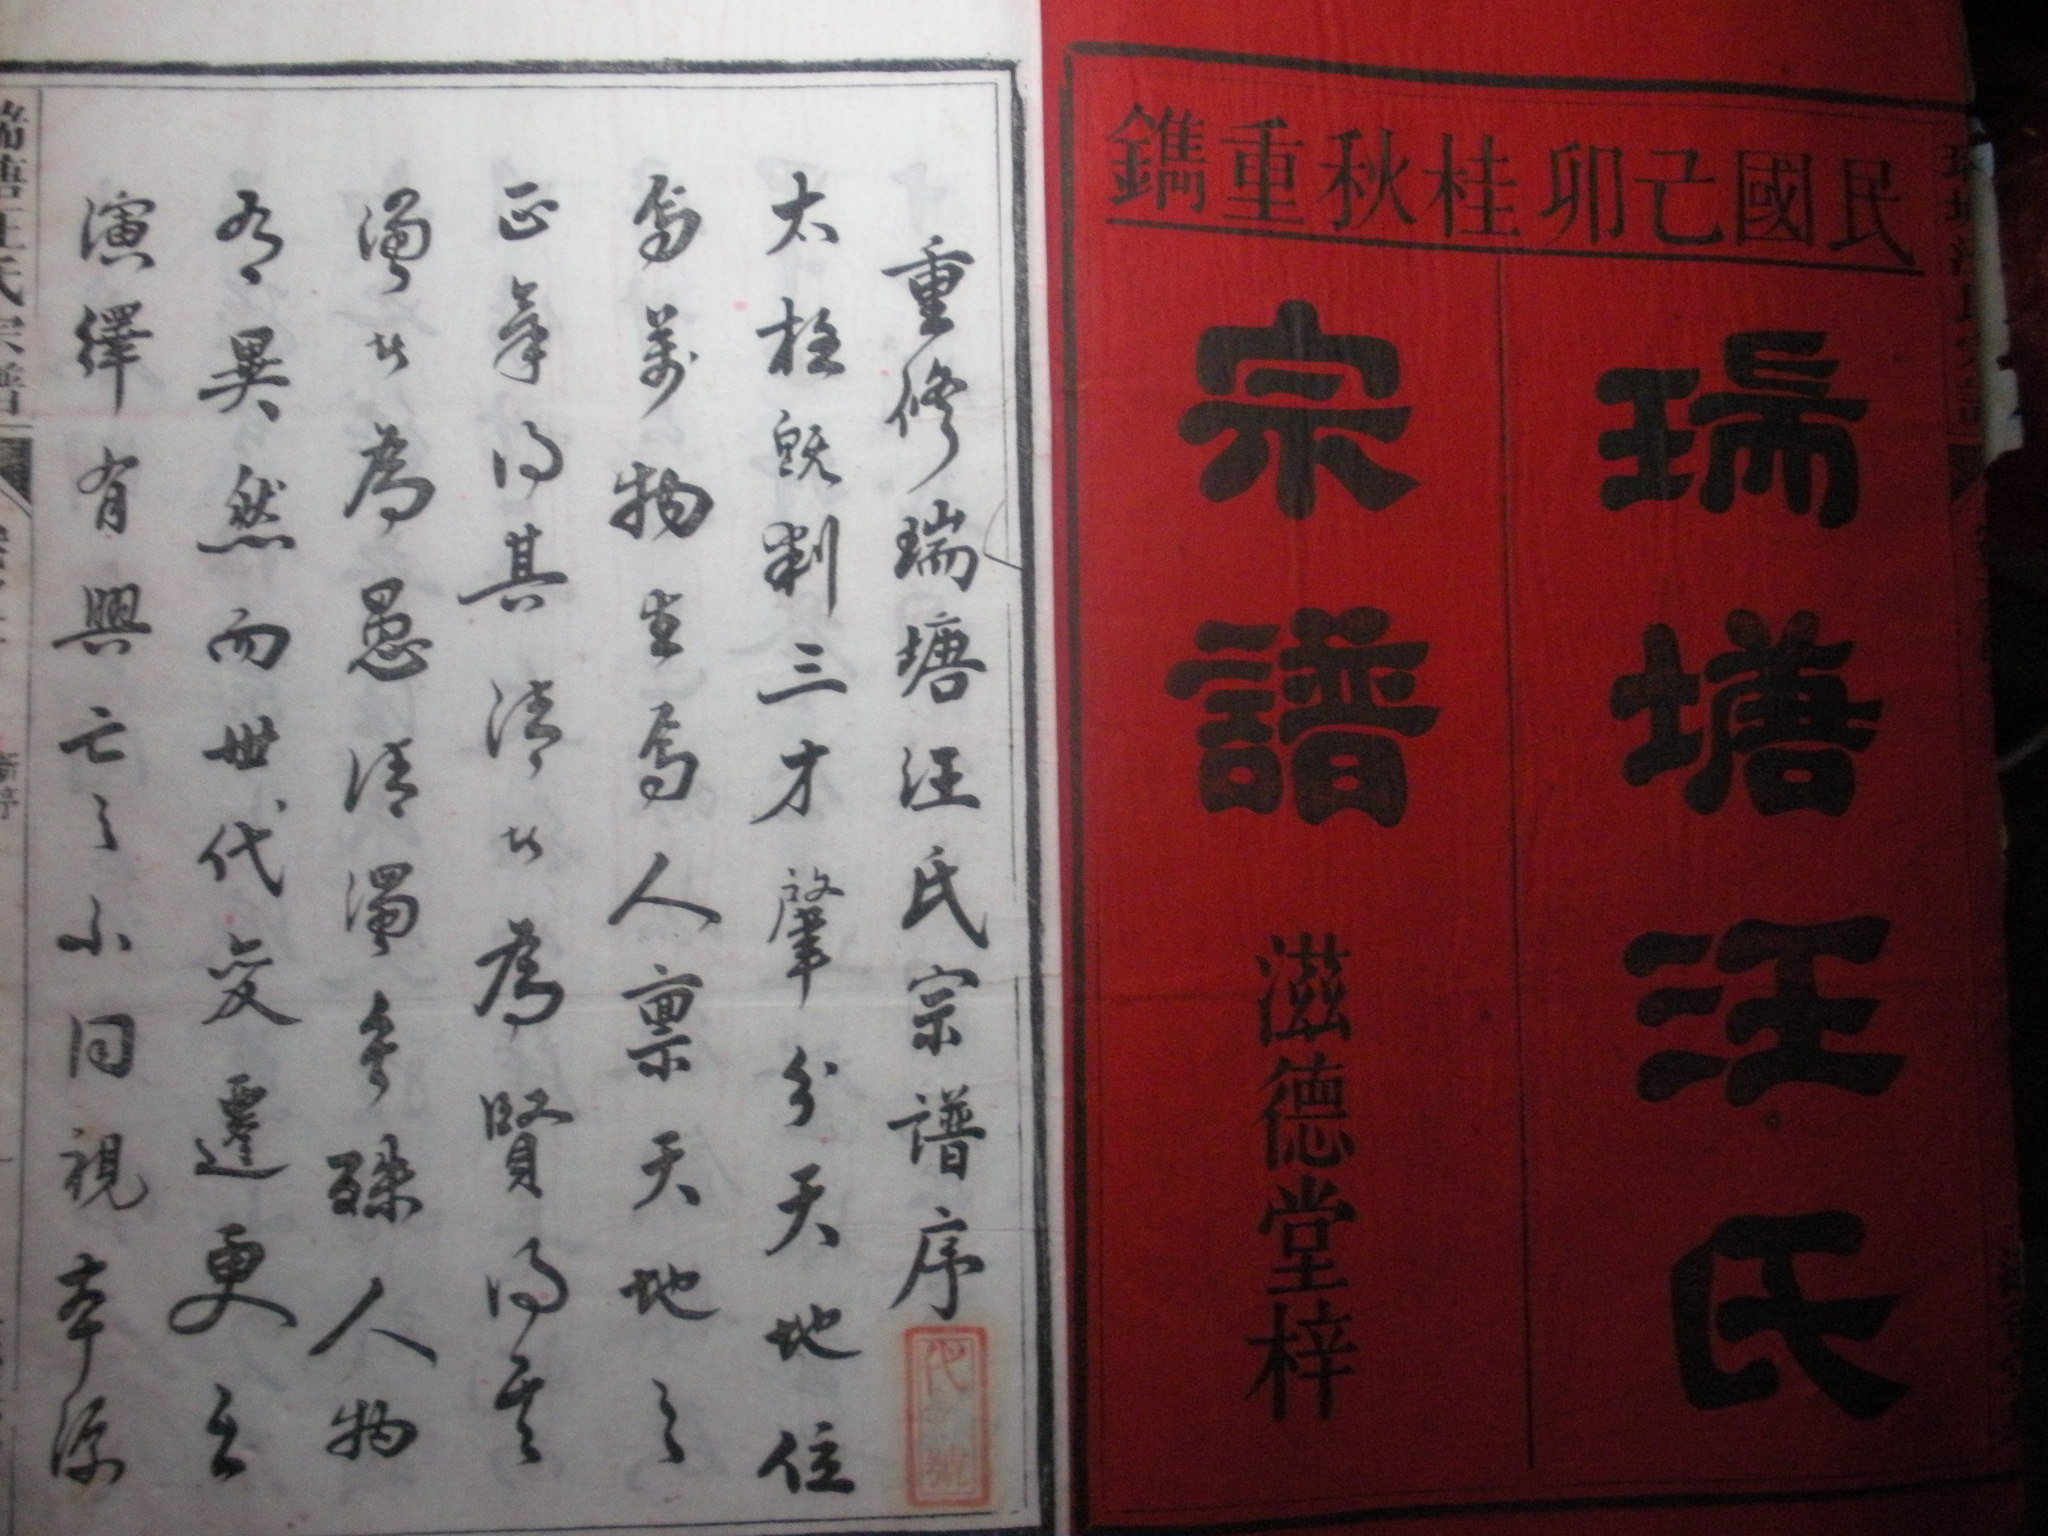 民國己卯桂秋重鐫
瑞塘汪氏
宗譜
滋德堂梓
重修瑞塘汪氏宗譜序
太極既判三才肇分天地位
焉萬物生焉人稟天地之
正氣得其清者為賢得其
濁者為愚清濁參殊人物
乃異然而世代變遷更立
演繹有興亡之不同視本源
瑞塘汪氏宗譜